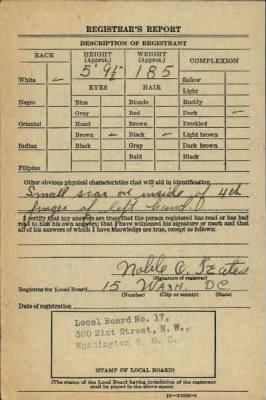 REGISTRAR'S REPORT
DESCRIPTION OF REGISTRANT
RACE HEIGHT (Approx.) WEIGHT (Approx.) COMPLEXION
5' 9½" 185
White Sallow
EYES HAIR Light
Negro Blue Blonde Ruddy
Gray Red Dark
Oriental Hazel Brown Freckled
Brown Black Light brown
Indian Black Gray Dark brown
Bald Black
Filipino
Other obvious physical characteristics that will aid in identification
Small scar on inside of 4th
finger of left hand
I certify that my answers are true; that the person registered has read or has had
read to him his own answers; that I have witnessed his signature or mark and that
all of his answers of which I have knowledge are true, except as follows:
Noble C.
(Signature of registrar)
Registrar for Local Board 15 Wash. D.C.
(Number) (City or county) (State)
Date of registration
Local Board No. 17,
300 21st Street, N. W.,
Washington 6, D. C.
(STAMP OF LOCAL BOARD)
(The stamp of the Local Board having jurisdiction of the registrant
shall be placed in the above space.)